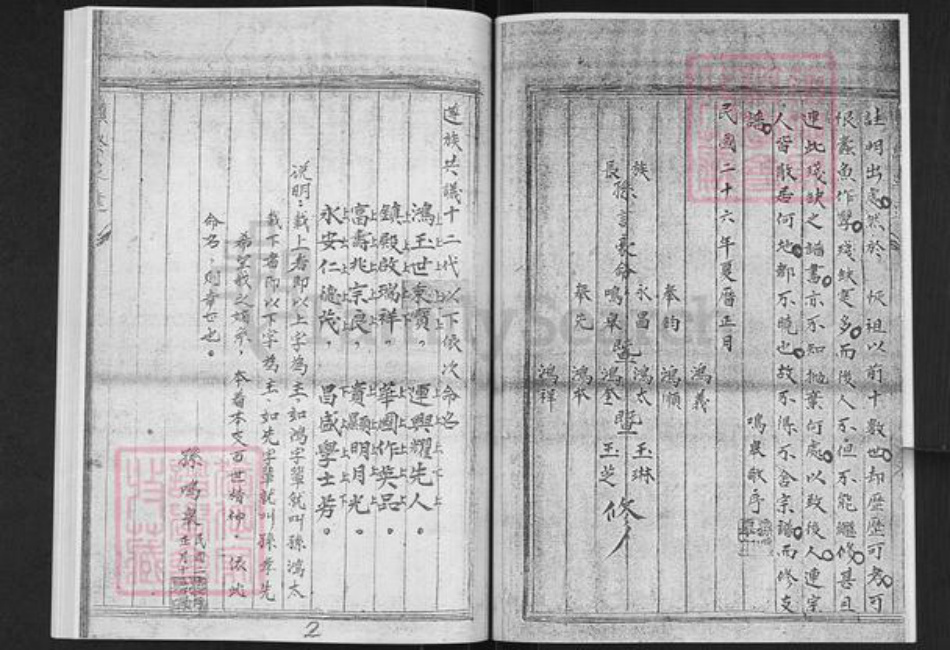 註明出處然於恢祖以前十數世却歷歷可考可
恨蠹魚作孽殘缺寔多而後人不但不能繼修甚且
連此殘缺之譜書亦不知抛棄何處以致後人連宗
人皆散居何地都不曉也故不得不舍宗譜而修支
譜
鳴皋敬序
民國二十六年夏曆正月
鴻義
奉鈞 鴻順
族 永昌 鴻太 玉琳
長孫言豪命鳴皋暨鴻奎暨玉芝修
奉先 鴻本
鴻祥
遵族共議十二代以下依次命名
鴻玉世東賓。 運興耀先人。
鎮殿啟瑞祥。 華國作英品。
富壽兆宗良。 寶顯明月光。
永安仁德茂, 昌盛學士芳。
説明:載上者即以上字為主,如鴻字輩就叫孫鴻太
載下者即以下字為主,如先字輩就叫孫奉先
希望我之頌参,本着本支百世精神,依此
命名,則幸甚也。
孫鳴皋
民國二
正月十
2
FamilySearch